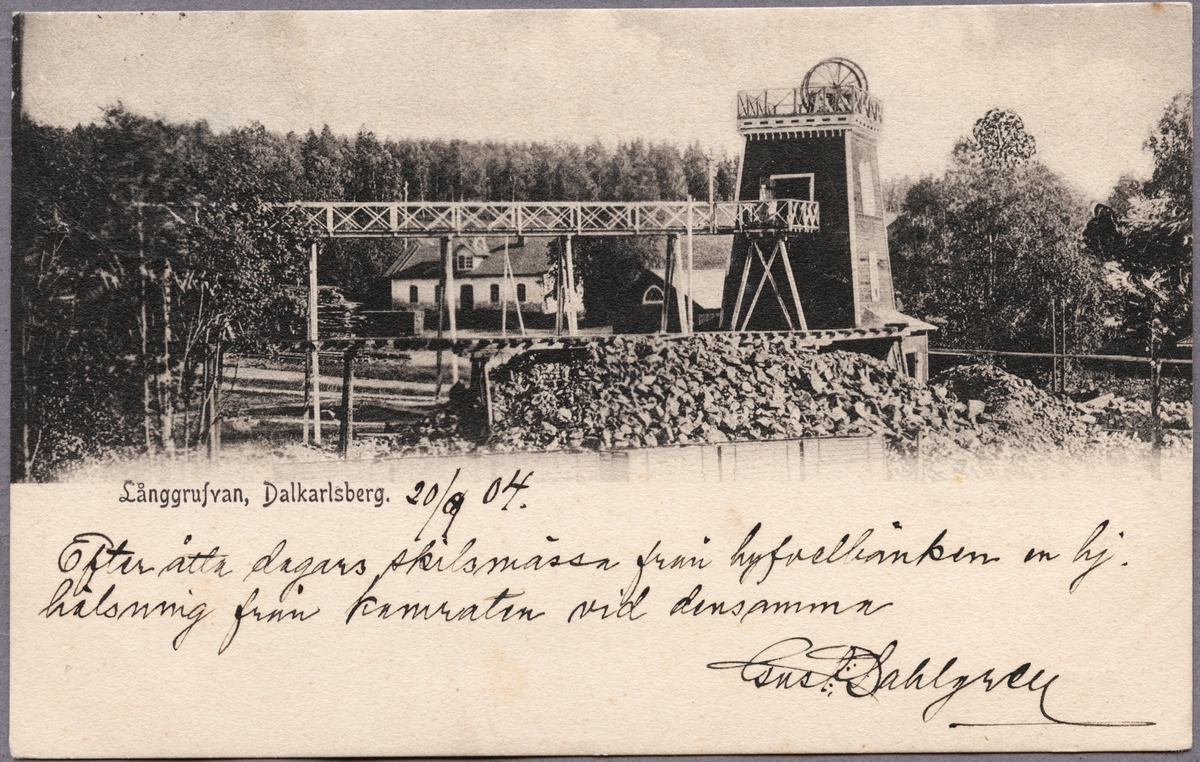 Långgrufvan, Dalkarlsberg. 20/9 04.
Efter åtta dagars skilsmässa från hyfvelbänken en hj.
hälsning från kamraten vid densamma
Gust. Dahlgren